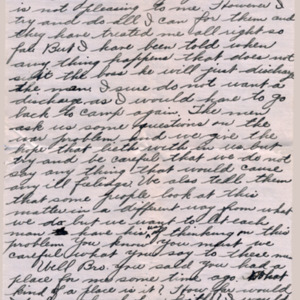 is not pleasing to me. However I
try and do all I can for them and
they have treated me all right so
far. But I have been told when
any thing happens that does not
suit the boss he will just discharge
the man. I sure do not want a
discharge as I would have to go
back to camp again. The men
ask us some questions on the
war problem. So we give the
hope that lieth with in us. but
try and be careful that we do not
say any thing that would cause
any ill feelings. We also tell them
that some people look at this
matter in a different way from what
we do. but we want to let each
man have his way of thinking on this
problem. You know you must we
careful what you say to these men
Well Bro. you said you had a
place for me some time ago. What
kind of a place is it? How far would